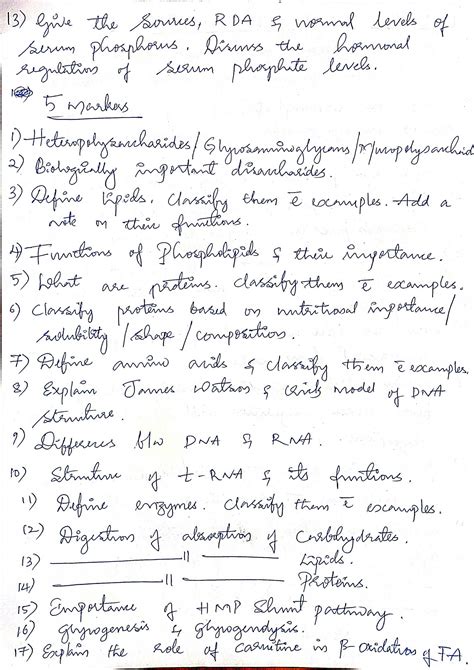 13) Give the Sources, RDA & normal levels of
serum phosphorus. Discuss the hormonal
regulation of serum phosphate levels.
5 markers
1) Heteropolysaccharides/Glycosaminoglycans/Mucopolysaccharid
2) Biologically important disaccharides.
3) Define lipids. Classify them c̄ examples. Add a
note on their functions.
4) Functions of Phospholipids & their importance.
5) What are proteins. classify them c̄ examples.
6) Classify proteins based on nutritional importance/
solubility/shape/composition.
7) Define amino acids & classify them c̄ examples.
8) Explain James Watson & Crick model of DNA
structure.
9) Differences b/w DNA & RNA.
10) Structure of t-RNA & its functions.
11) Define enzymes. Classify them c̄ examples.
12) Digestion & absorption of Carbohydrates.
13) ———— 11 ———— Lipids.
14) ———— 11 ———— Proteins.
15) Importance of HMP Shunt pathway.
16) glycogenesis & glycogenolysis.
17) Explain the role of carnitine in β-oxidation of FA